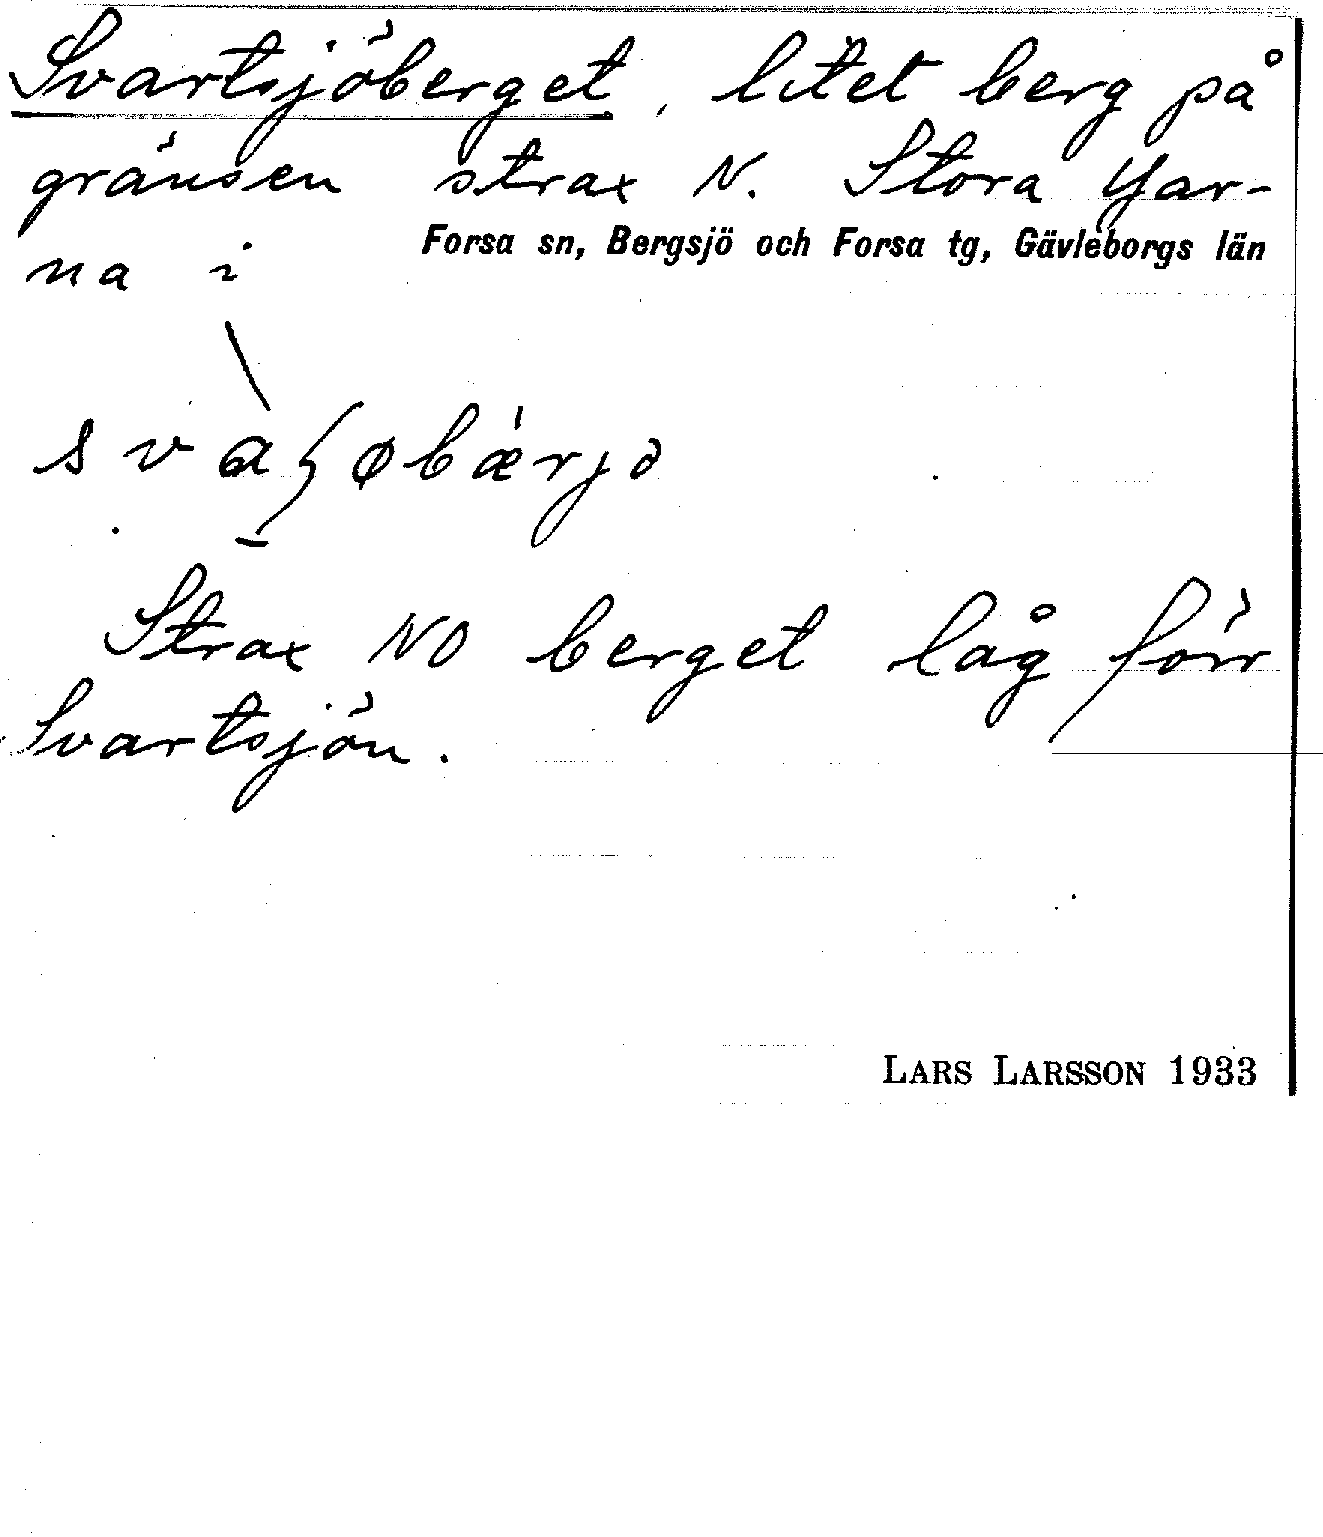 Svartsjöberget, litet berg på
gränsen strax N. Stora Yar-
na i Forsa sn, Bergsjö och Forsa tg, Gävleborgs län
Strax NO berget låg förr
Svartsjön.
LARS LARSSON 1933